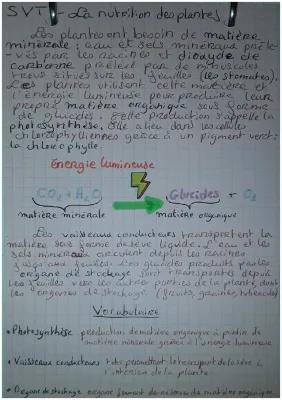 SVT - La nutrition des plantes
Les plantes ont besoin de matière
minérale : eau et sels minéraux préle-
-vés par les racines et dioxyde de
carbone prélevé par de minuscules
trous situés sur les feuilles (les stomates).
Les plantes utilisent cette matière et
l'énergie lumineuse pour produire leur
propre matière organique sous forme
de glucides. Cette production s'appelle la
photosynthèse. Elle a lieu dans les cellules
chlorophylliennes grâce à un pigment vert :
la chlorophylle.
Energie lumineuse
CO2 + H2O Glucides + O2
matière minérale matière organique
Les vaisseaux conducteurs transportent la
matière sous forme de sève liquide. L'eau et les
sels minéraux circulent depuis les racines
jusqu'aux feuilles. Les glucides produits
organe de stockage sont transportés depuis
les feuilles vers les autres parties de la plante, dont
les organes de stockage (fruits, graines, tubercules)
Vocabulaire
• Photosynthèse production de matière organique à partir de
matière minérale grâce à l'énergie lumineuse
• Vaisseaux conducteurs tube permettant le transport de la sève à
l'intérieur de la plante
• Organe de stockage organe formant des réserves de matière organique